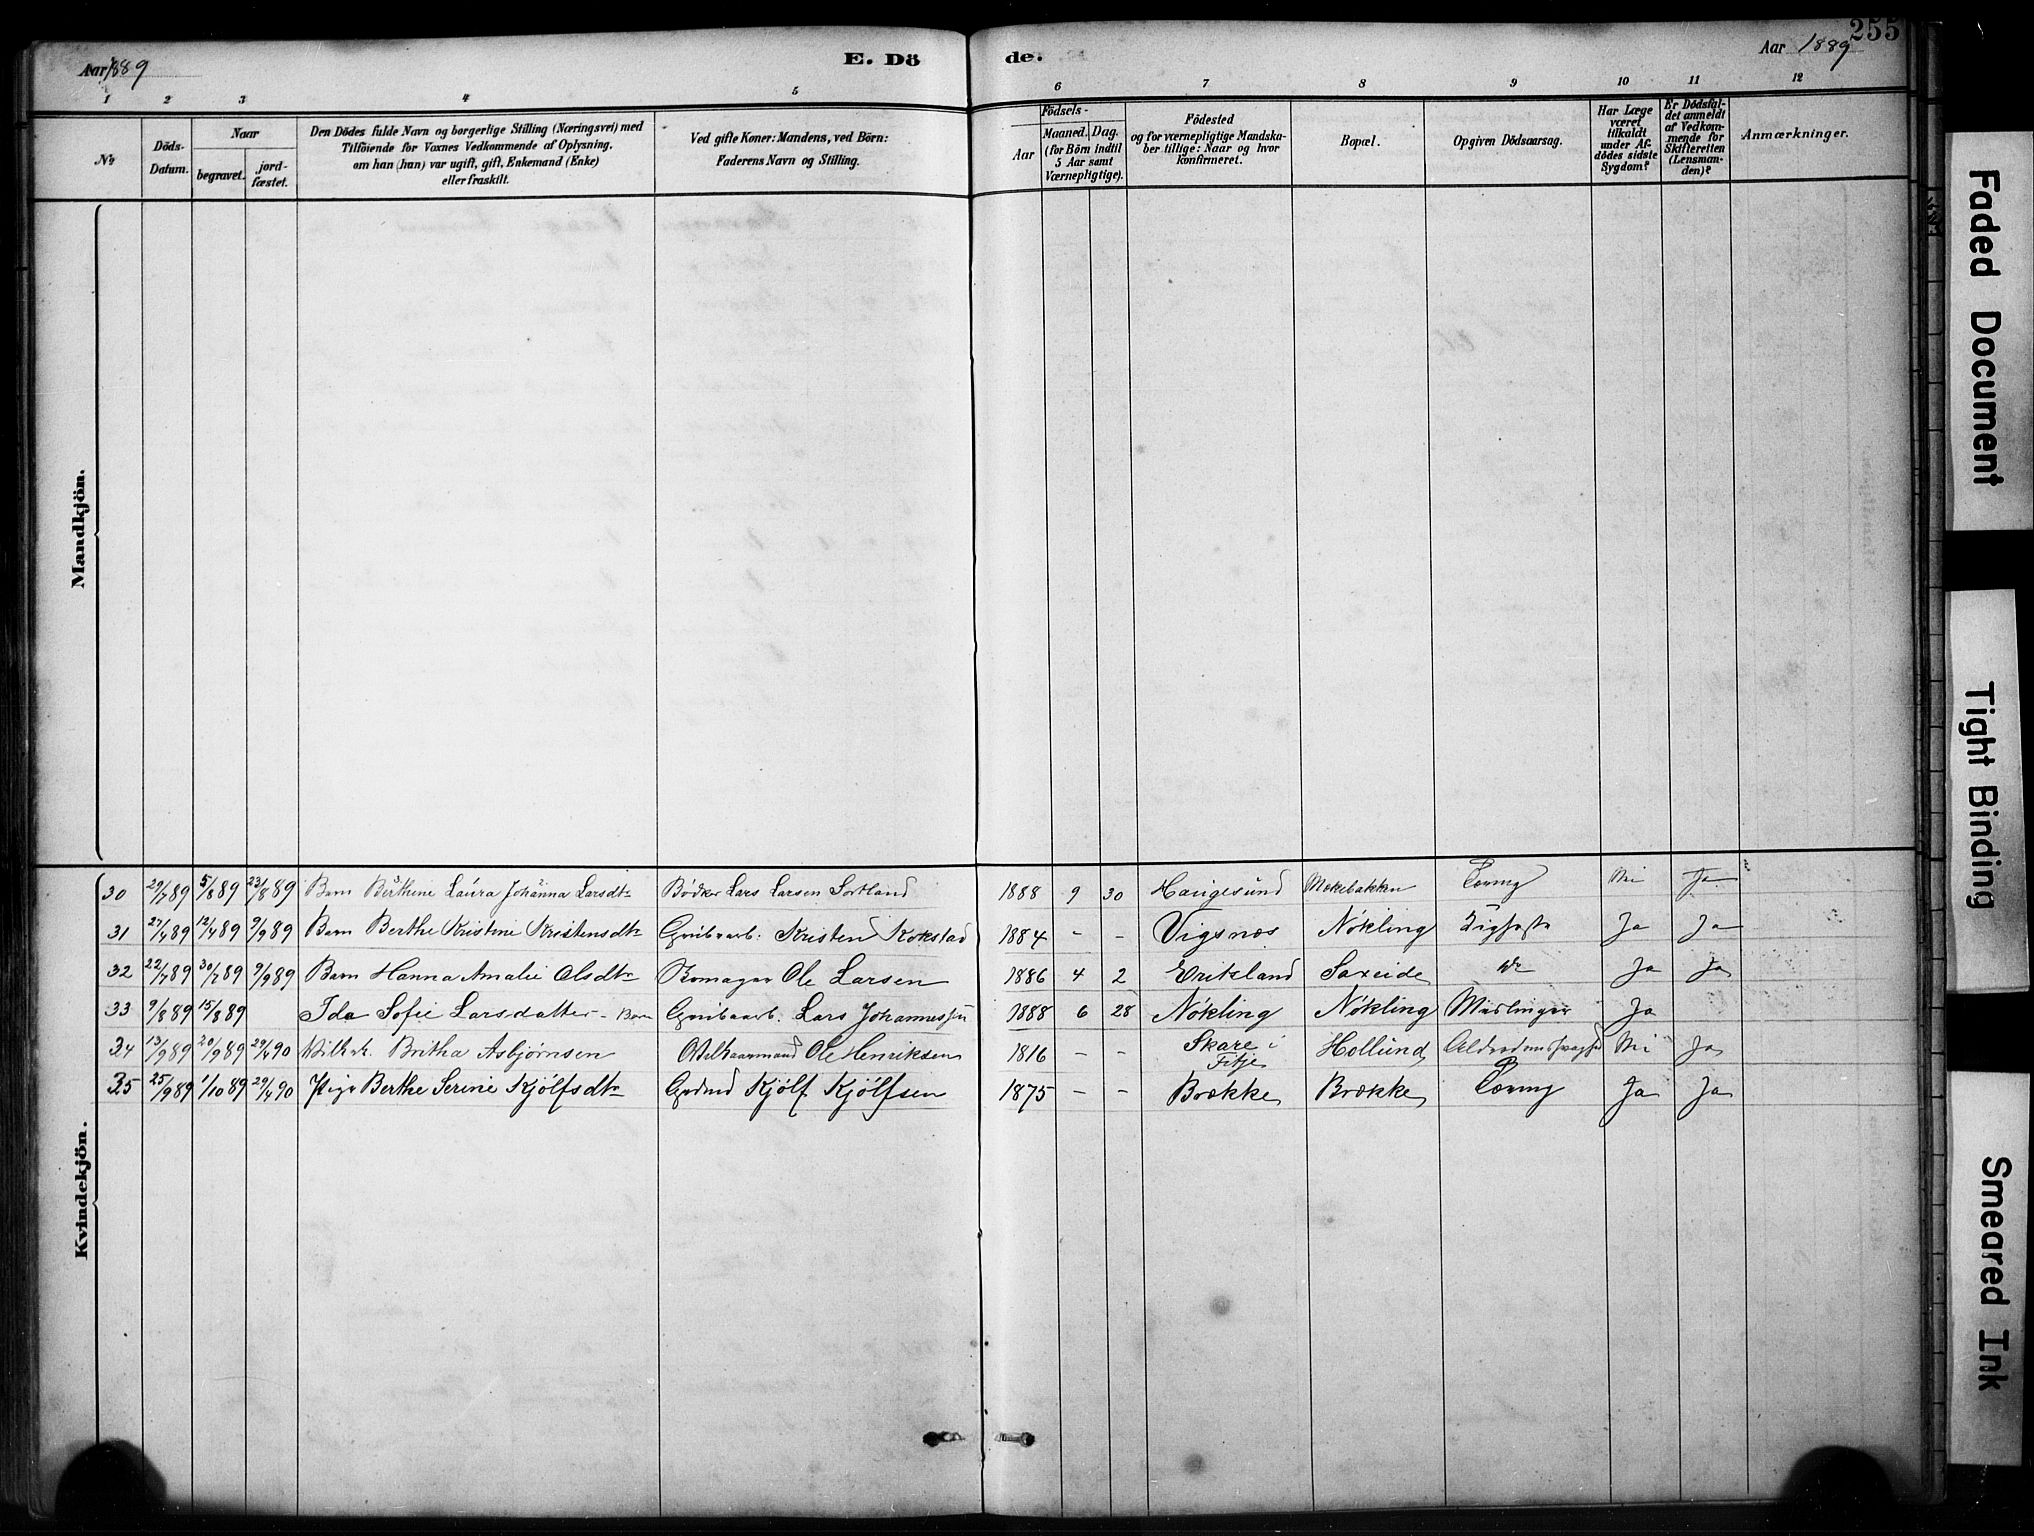 255
Aar 1889 E. Dö de. Aar 1889
1 2 3 4 5 6 7 8 9 10 11 12
No
Döds-Datum.
Naar
begravet.
jord-fæstet.
Den Dödes fulde Navn og borgerlige Stilling (Næringsvei) med
Tilföiende for Voxnes Vedkommende af Oplysning,
om han (hun) var ugift, gift, Enkemand (Enke)
eller fraskilt.
Ved gifte Koner: Mandens, ved Börn:
Faderens Navn og Stilling.
Födsels-
Aar
Maaned. Dag.
(for Börn indtil
5 Aar samt
Værnepligtige).
Födested
og for værnepligtige Mandska-
ber tillige: Naar og hvor
konfirmeret.
Bopæl.
Opgiven Dödsaarsag.
Har Læge
været
tilkaldt
under Af-
dödes sidste
Sygdom?
Er Dödsfal-
det anmeldt
af Vedkom-
mende for
Skifteretten
(Lensman-
den)?
Anmærkninger.
Mandkjön.
Kvindekjön.
30 29/7 89 5/8 89 23/8 89 Barn Berthine Laura Johanna Larsdtr Bødker Lars Larsen Sortland 1888 9 30 Haugesund Tæring Nei Ja
31 27/4 89 12/4 89 9/9 89 Barn Berthe Kristine Kristensdtr Grubearb. Kristen Kokstad 1884 - - Vigsnæs Nökling Ja Ja
32 22/7 89 30/7 89 9/9 89 Barn Hanna Amalie Olsdtr Ole Larsen 1886 4 2 Erikland Saxeide Ja Ja
33 9/8 89 15/8 89 Ida Sofie Larsdatter - Barn Grubearb. Lars Johannessen 1888 6 28 Nökling Nökling Mæslinger Ja
34 13/9 89 20/9 89 29/4 90 Britha Asbjørnsen Ole Henriksen 1816 - - Skare i Fitje Hollund Alderdomssvaghed Nei Ja
35 25/9 89 1/10 89 29/4 90 Pige Berthe Serine Kjölfsdtr Grdmd Kjölf Kjölfsen 1875 - - Brække Brække Tæring Ja Ja
Faded Document
Tight Binding
Smeared Ink